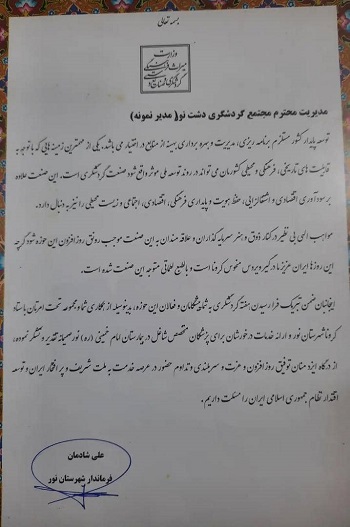 بسمه تعالی
وزارت
میراث فرهنگی
گردشگری و صنایع دستی
مدیریت محترم مجتمع گردشگری دشت نو( مدیر نمونه)
توسعه پایدار کشور مستلزم برنامه ریزی، مدیریت و بهره برداری بهینه از منابع در اختیار می باشد. یکی از مهمترین زمینه هایی که با توجه به
قابلیت های تاریخی، فرهنگی و محیطی کشورمان می تواند در روند توسعه ملی موثر واقع شود صنعت گردشگری است. این صنعت علاوه
بر سودآوری اقتصادی و اشتغالزایی، حفظ هویت و پایداری فرهنگی، اقتصادی، اجتماعی و زیست محیطی را نیز به دنبال دارد.
مواهب الهی بی نظیر در کنار ذوق و هنر سرمایه گذاران و علاقه مندان به این صنعت موجب رونق روزافزون این حوزه شود گرچه
این روزها ایران عزیز ما درگیر ویروس منحوس کرونا ست و بالطبع لطماتی متوجه این صنعت شده است.
اینجانب ضمن تبریک فرا رسیدن هفته گردشگری به شما و پیشگامان و فعالان این حوزه، بدینوسیله از همکاری شما و مجموعه تحت امرتان با ستاد
کرونا شهرستان نور و ارائه خدمات در خورشان برای پزشکان متخصص شاغل در بیمارستان امام خمینی (ره) نور صمیمانه تقدیر و تشکر نموده،
از درگاه ایزد منان توفیق روز افزون و عزت و سربلندی و تداوم حضور در عرصه خدمت به ملت شریف و پر افتخار ایران و توسعه
اقتدار نظام جمهوری اسلامی ایران را مسئلت داریم.
علی شادمان
فرماندار شهرستان نور